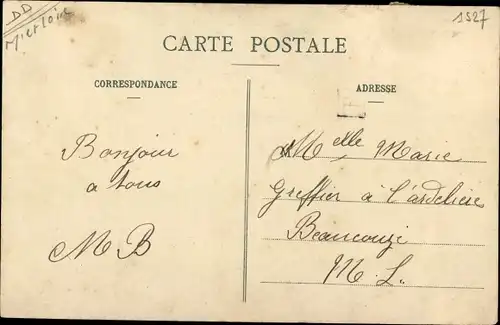 DD
M et Loire
1527
CARTE POSTALE
CORRESPONDANCE
ADRESSE
Bonjour
a tous
M B
Melle Marie
Greffier à l'ardelière
Beaucouzé
M. L.